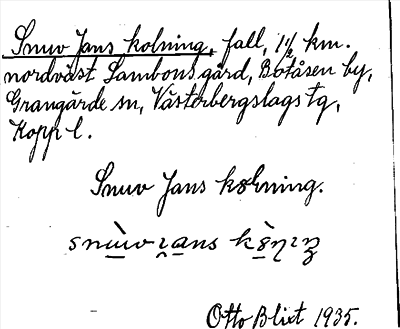 Snuv Jans kolning, fall, 1½ km.
nordväst Lambons gård, Botåsen by,
Grangärde sn, Västerbergslags tg,
Kopp l.
Snuv Jans kolning.
snùv ɪ̯ans kò̀ɳɪŋ
Otto Blixt 1935.